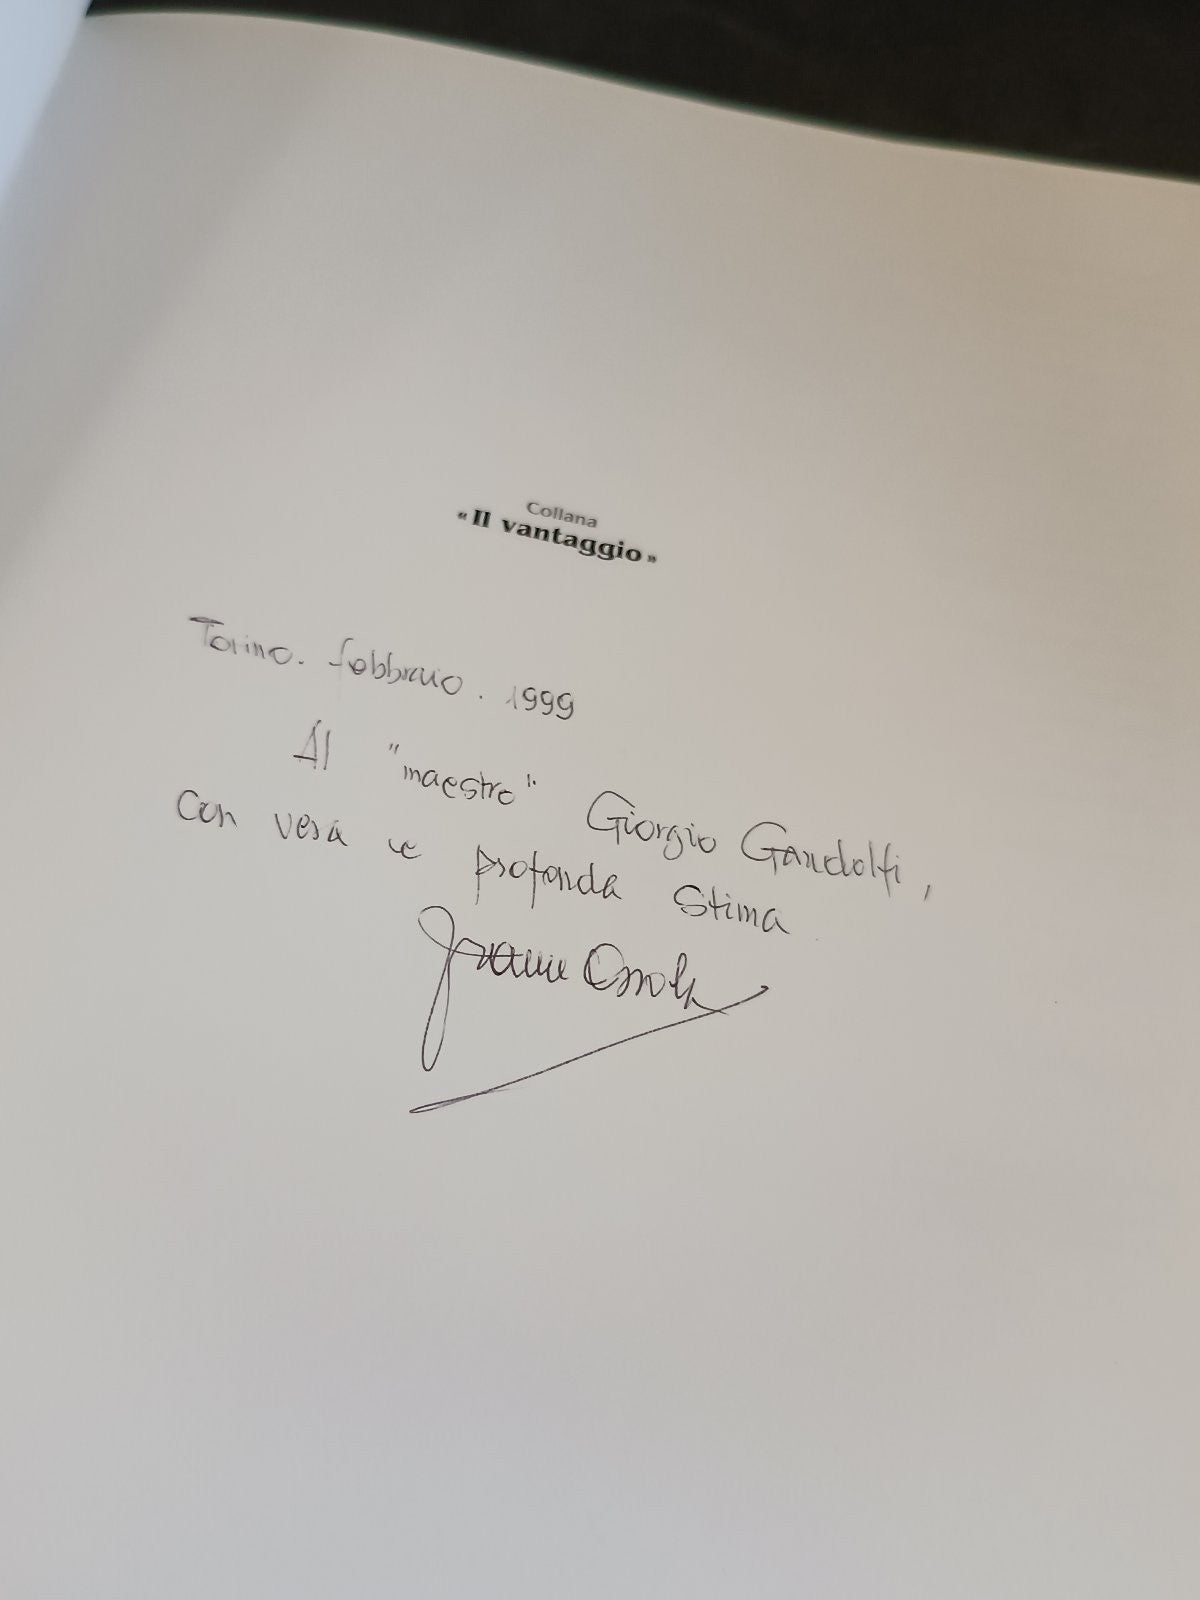 Collana
«Il vantaggio»
Torino. febbraio. 1999
Al "maestro" Giorgio Gandolfi,
con vera e profonda stima